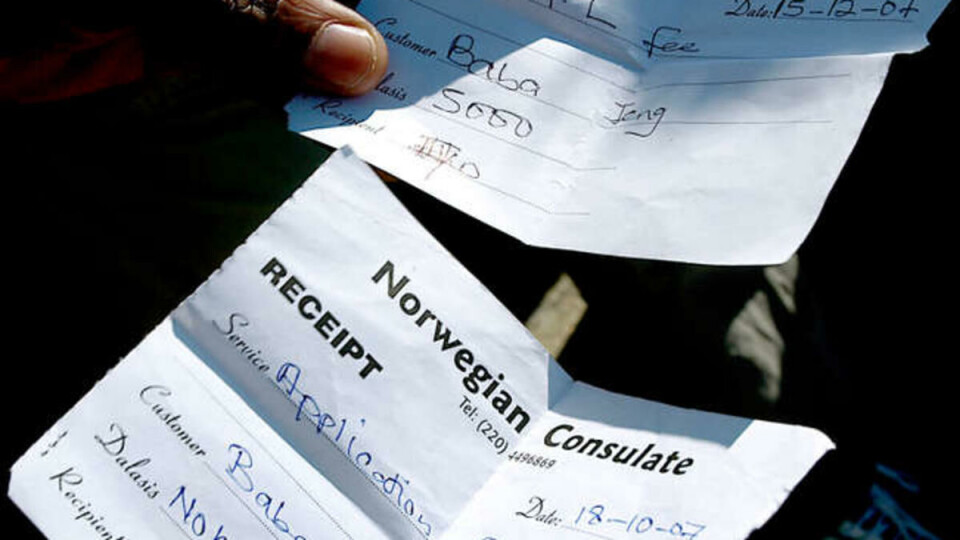 Date: 15-12-07
Fee
Customer Baba Jeng
lasis 5000
Recipient
Norwegian Consulate
Tel: (220) 4496869
RECEIPT
Date: 18-10-07
Service Application
Customer Baba
Dalasis
Recipient